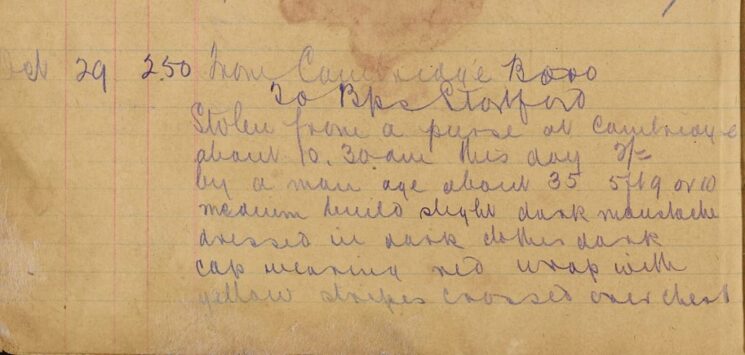 Oct 29 2.50 From Cambridge Boro
To Bps Stortford
Stolen from a purse at Cambridge
about 10.30 am this day 2/-
by a man age about 35 5ft 9 or 10
medium build slight dark moustache
dressed in dark clothes dark
cap wearing red wrap with
yellow stripes crossed over chest